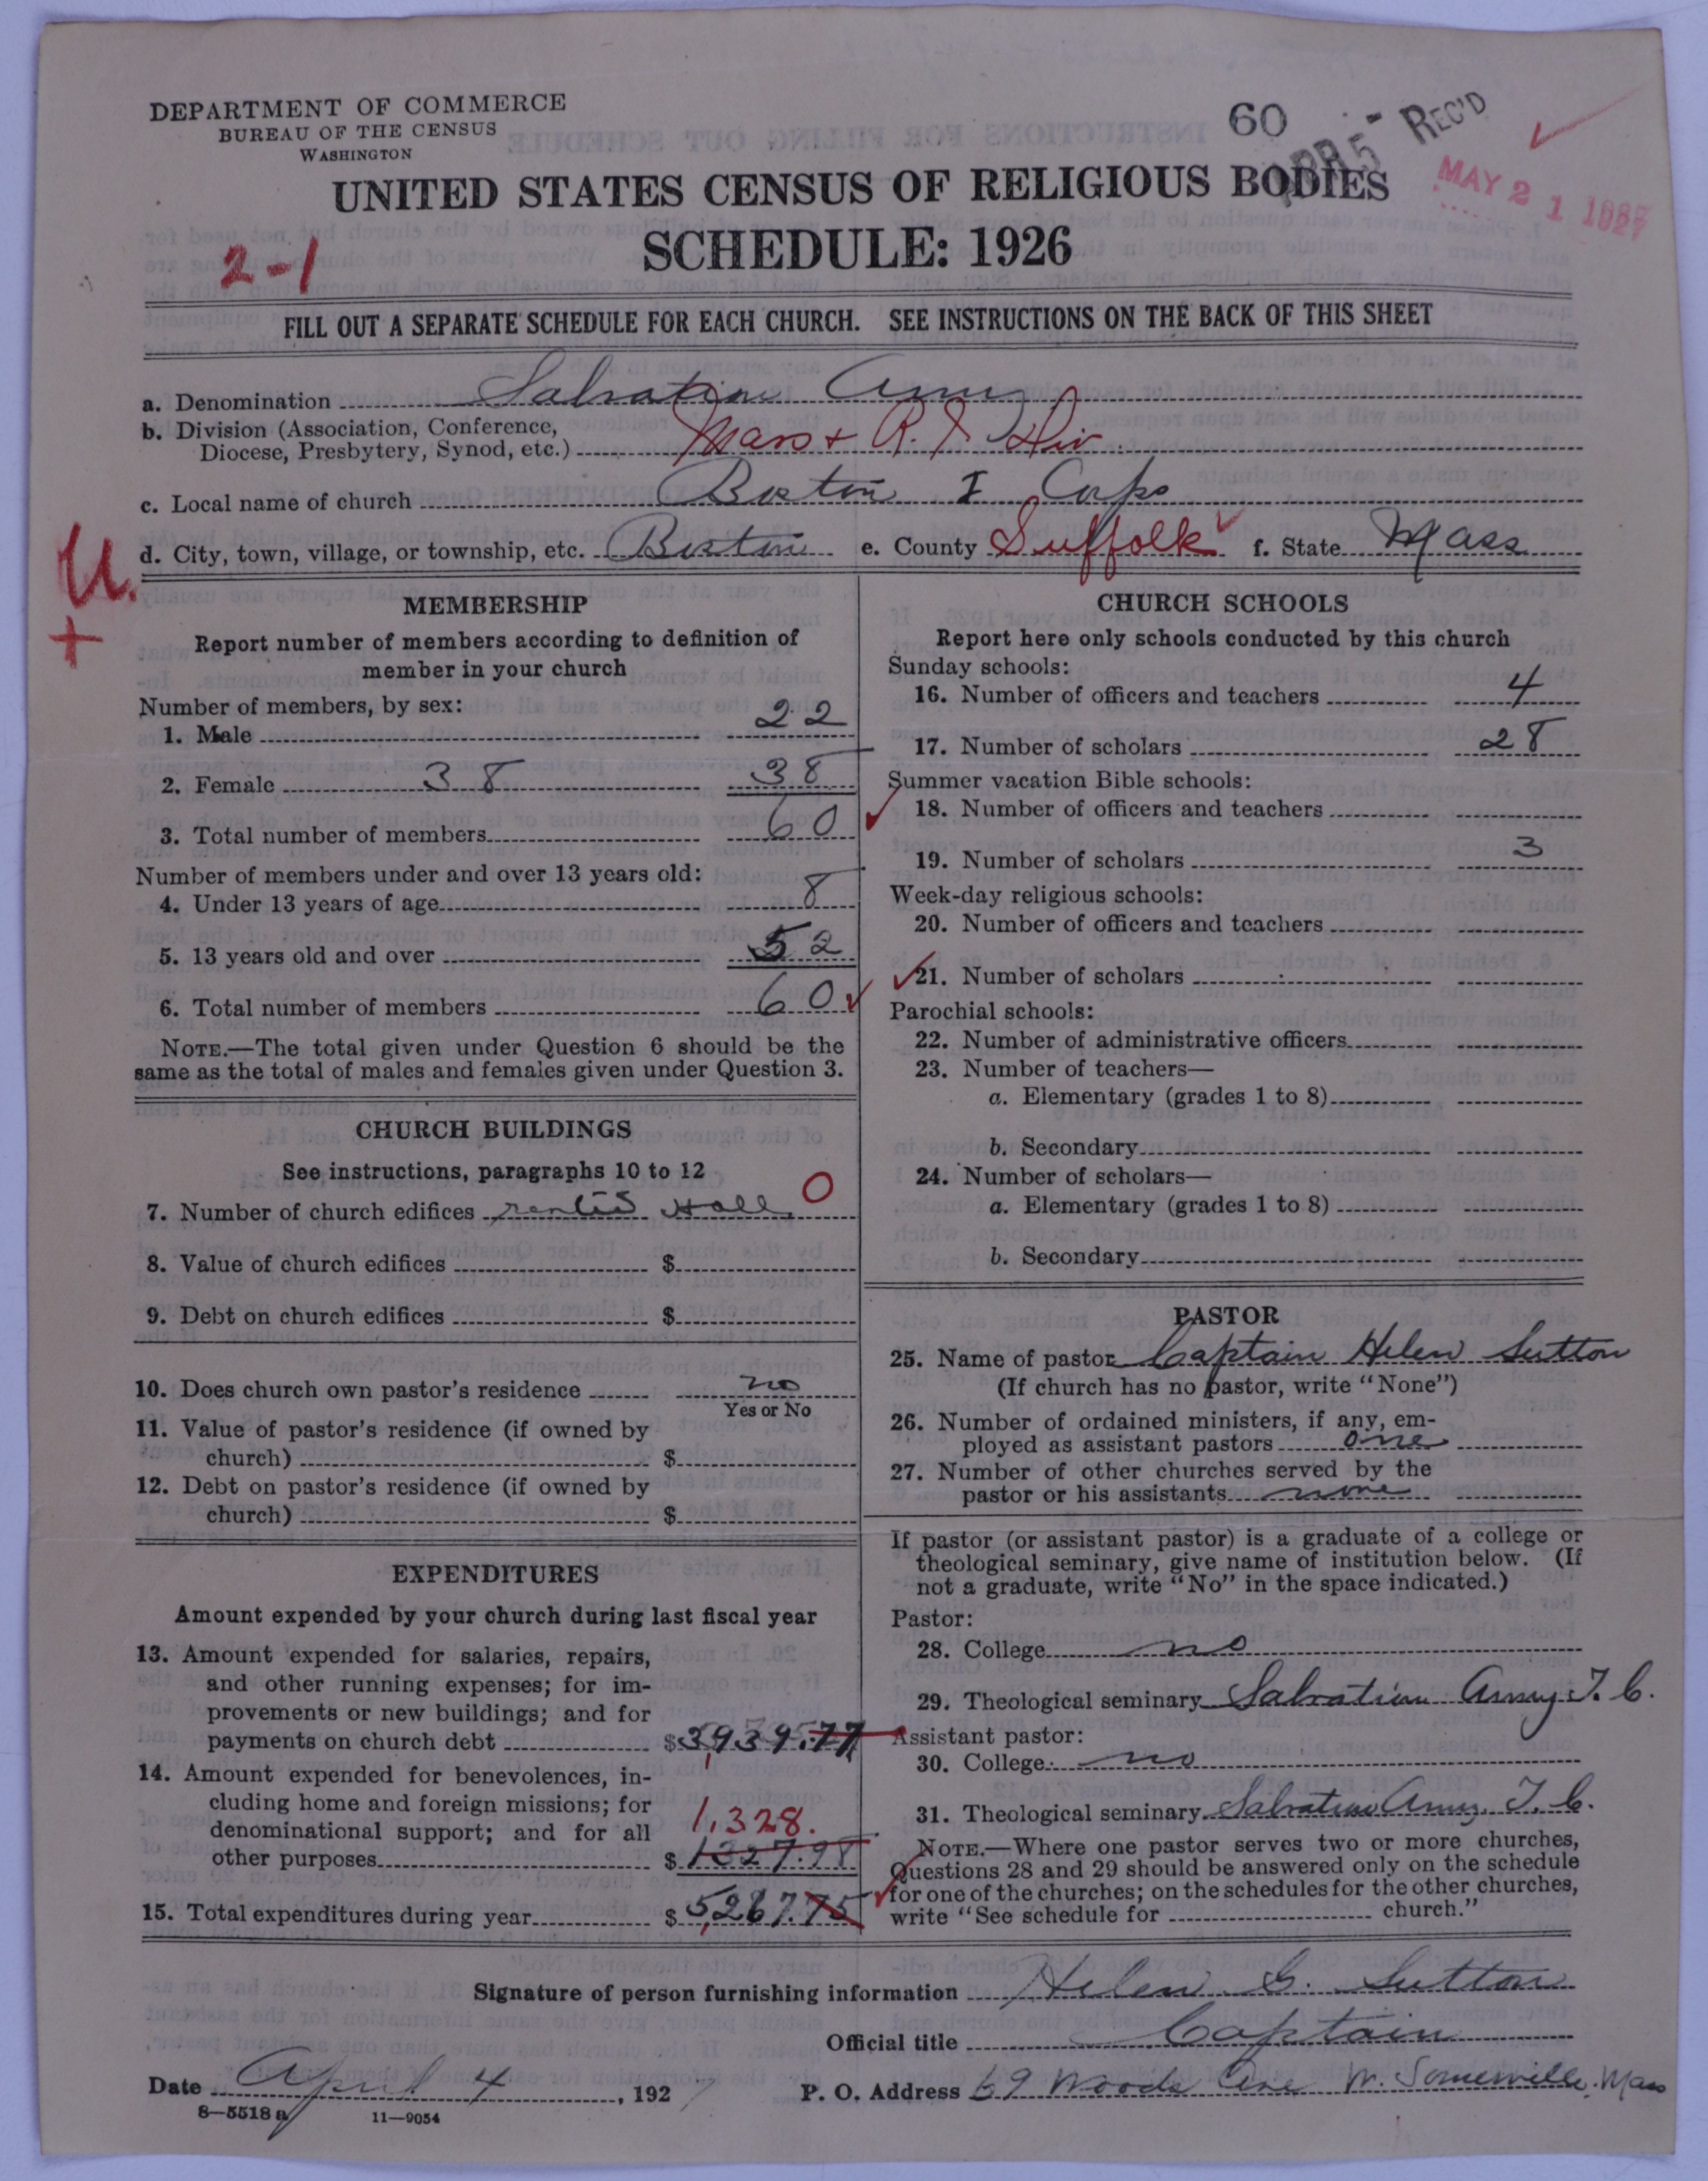 DEPARTMENT OF COMMERCE
BUREAU OF THE CENSUS
WASHINGTON
60
APR 5- REC'D
MAY 21 1927
UNITED STATES CENSUS OF RELIGIOUS BODIES
SCHEDULE: 1926
2-1
FILL OUT A SEPARATE SCHEDULE FOR EACH CHURCH. SEE INSTRUCTIONS ON THE BACK OF THIS SHEET
a. Denomination Salvation Army
b. Division (Association, Conference,
Diocese, Presbytery, Synod, etc.) Mass + R. I Div.
c. Local name of church Boston I Corps
d. City, town, village, or township, etc. Boston e. County Suffolk f. State Mass
U.
+
MEMBERSHIP
Report number of members according to definition of
member in your church
Number of members, by sex:
1. Male 22
2. Female 38 38
3. Total number of members 60
Number of members under and over 13 years old:
4. Under 13 years of age 8
5. 13 years old and over 52
6. Total number of members 60
NOTE.—The total given under Question 6 should be the
same as the total of males and females given under Question 3.
CHURCH BUILDINGS
See instructions, paragraphs 10 to 12
7. Number of church edifices rented Hall 0
8. Value of church edifices $
9. Debt on church edifices $
10. Does church own pastor's residence no
Yes or No
11. Value of pastor's residence (if owned by
church) $
12. Debt on pastor's residence (if owned by
church) $
EXPENDITURES
Amount expended by your church during last fiscal year
13. Amount expended for salaries, repairs,
and other running expenses; for im-
provements or new buildings; and for
payments on church debt $3,939.77
14. Amount expended for benevolences, in-
cluding home and foreign missions; for
denominational support; and for all
1,328.
other purposes $1327.98
15. Total expenditures during year $5,267.75
CHURCH SCHOOLS
Report here only schools conducted by this church
Sunday schools:
16. Number of officers and teachers 4
17. Number of scholars 28
Summer vacation Bible schools:
18. Number of officers and teachers
19. Number of scholars 3
Week-day religious schools:
20. Number of officers and teachers
21. Number of scholars
Parochial schools:
22. Number of administrative officers
23. Number of teachers—
a. Elementary (grades 1 to 8)
b. Secondary
24. Number of scholars—
a. Elementary (grades 1 to 8)
b. Secondary
PASTOR
25. Name of pastor Captain Helen Sutton
(If church has no pastor, write "None")
26. Number of ordained ministers, if any, em-
ployed as assistant pastors one
27. Number of other churches served by the
pastor or his assistants none
If pastor (or assistant pastor) is a graduate of a college or
theological seminary, give name of institution below. (If
not a graduate, write "No" in the space indicated.)
Pastor:
28. College no
29. Theological seminary Salvation Army T. C.
Assistant pastor:
30. College no
31. Theological seminary Salvation Army T. C.
NOTE.—Where one pastor serves two or more churches,
Questions 28 and 29 should be answered only on the schedule
for one of the churches; on the schedules for the other churches,
write "See schedule for church."
Signature of person furnishing information Helen G. Sutton
Official title Captain
Date April 4, 1927
P. O. Address 69 Woods Ave W. Somerville, Mass
8—5518 a
11—9054